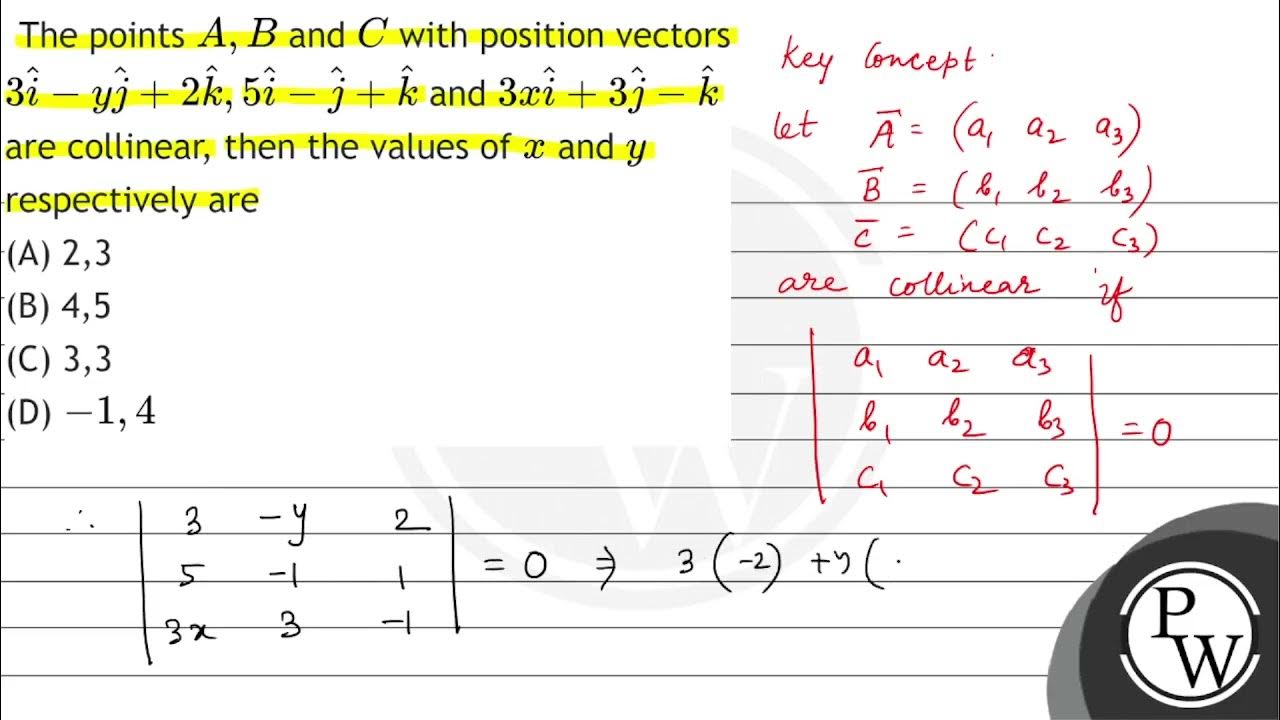 The points A, B and C with position vectors
3î − yĵ + 2k̂, 5î − ĵ + k̂ and 3xî + 3ĵ − k̂
are collinear, then the values of x and y
respectively are
(A) 2,3
(B) 4,5
(C) 3,3
(D) −1, 4
Key Concept.
let A̅ = (a₁ a₂ a₃)
B̅ = (b₁ b₂ b₃)
C̅ = (c₁ c₂ c₃)
are collinear if
| a₁ a₂ a₃ |
| b₁ b₂ b₃ | = 0
| c₁ c₂ c₃ |
∴ | 3 −y 2 |
| 5 −1 1 | = 0 ⇒ 3(−2) + y(
| 3x 3 −1 |
PW